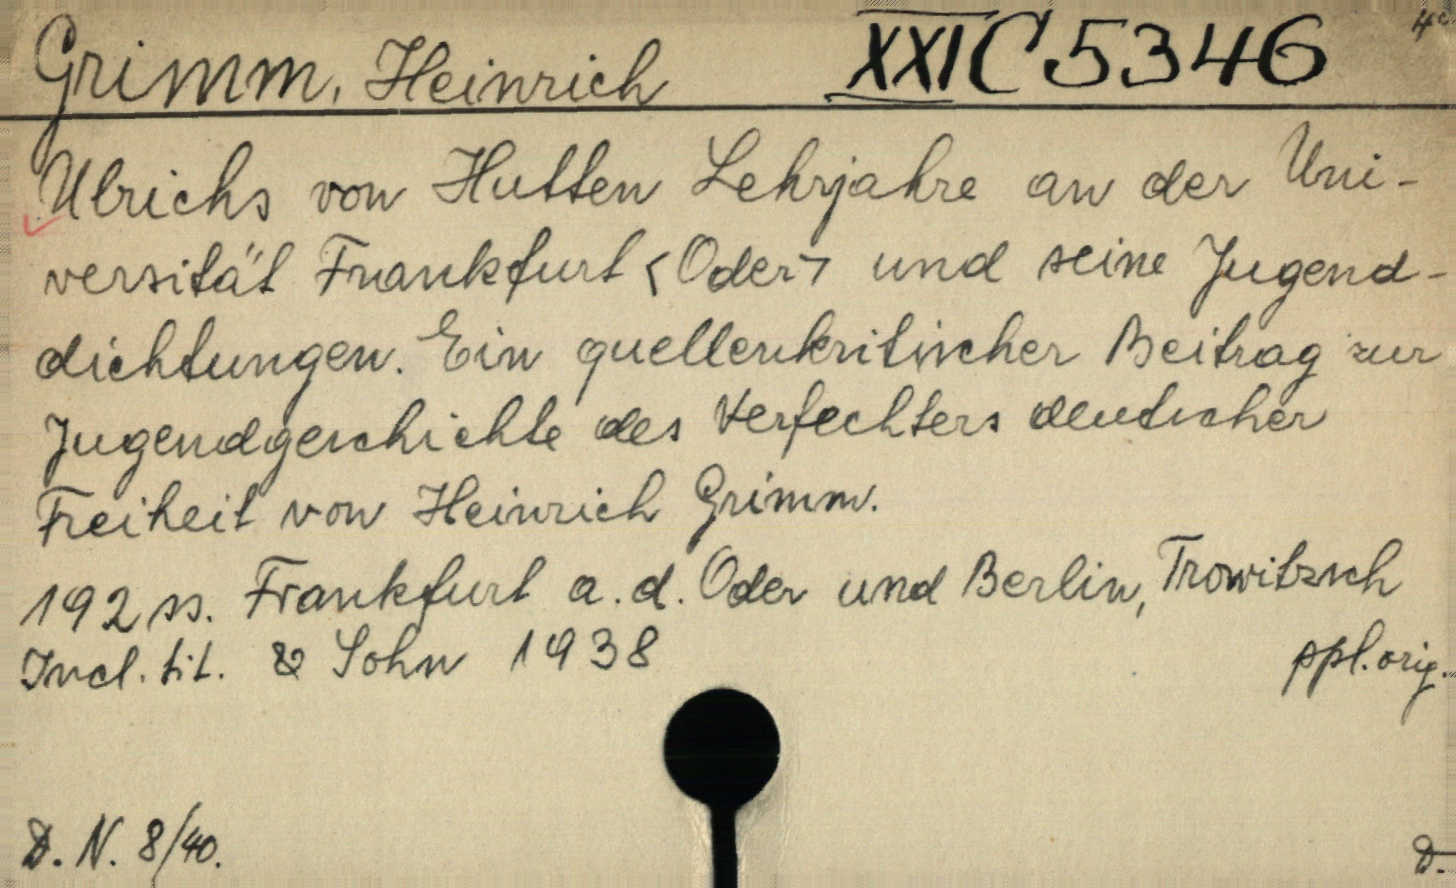 Grimm, Heinrich XXI C 5346 4°
Ulrichs von Hutten Lehrjahre an der Uni-
versität Frankfurt <Oder> und seine Jugend-
dichtungen. Ein quellenkritischer Beitrag zur
Jugendgeschichte des Verfechters deutscher
Freiheit von Heinrich Grimm.
192 ss. Frankfurt a. d. Oder und Berlin, Trowitzsch
Incl. tit. & Sohn 1938 ppl. orig.
D. N. 8/40. D.